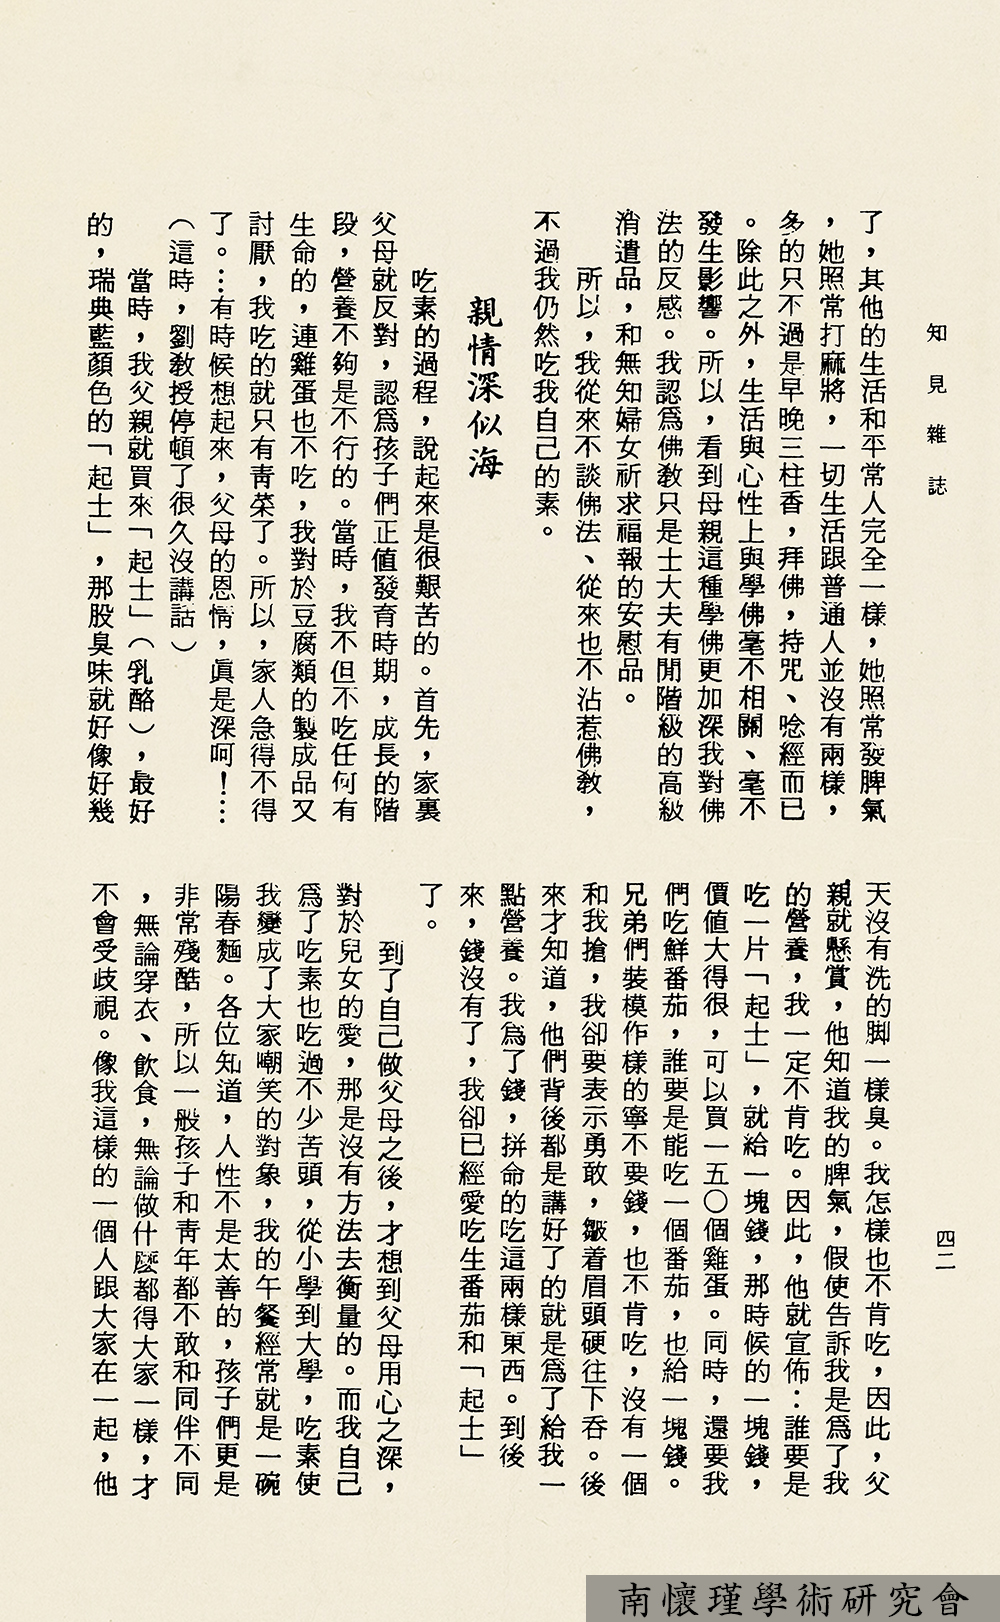 知見雜誌
四二
了，其他的生活和平常人完全一樣，她照常發脾氣
，她照常打麻將，一切生活跟普通人並沒有兩樣，
多的只不過是早晚三柱香，拜佛，持咒、唸經而已
。除此之外，生活與心性上與學佛毫不相關、毫不
發生影響。所以，看到母親這種學佛更加深我對佛
法的反感。我認爲佛教只是士大夫有閒階級的高級
消遣品，和無知婦女祈求福報的安慰品。
所以，我從來不談佛法、從來也不沾惹佛教，
不過我仍然吃我自己的素。
親情深似海
吃素的過程，說起來是很艱苦的。首先，家裏
父母就反對，認爲孩子們正值發育時期，成長的階
段，營養不夠是不行的。當時，我不但不吃任何有
生命的，連雞蛋也不吃，我對於豆腐類的製成品又
討厭，我吃的就只有靑菜了。所以，家人急得不得
了。…有時候想起來，父母的恩情，眞是深呵！…
（這時，劉教授停頓了很久沒講話）
當時，我父親就買來「起士」（乳酪），最好
的，瑞典藍顏色的「起士」，那股臭味就好像好幾
天沒有洗的脚一樣臭。我怎樣也不肯吃，因此，父
親就懸賞，他知道我的脾氣，假使告訴我是爲了我
的營養，我一定不肯吃。因此，他就宣佈：誰要是
吃一片「起士」，就給一塊錢，那時候的一塊錢，
價值大得很，可以買一五〇個雞蛋。同時，還要我
們吃鮮番茄，誰要是能吃一個番茄，也給一塊錢。
兄弟們裝模作樣的寧不要錢，也不肯吃，沒有一個
和我搶，我卻要表示勇敢，皺着眉頭硬往下吞。後
來才知道，他們背後都是講好了的就是爲了給我一
點營養。我爲了錢，拼命的吃這兩樣東西。到後
來，錢沒有了，我卻已經愛吃生番茄和「起士」
了。
到了自己做父母之後，才想到父母用心之深，
對於兒女的愛，那是沒有方法去衡量的。而我自己
爲了吃素也吃過不少苦頭，從小學到大學，吃素使
我變成了大家嘲笑的對象，我的午餐經常就是一碗
陽春麵。各位知道，人性不是太善的，孩子們更是
非常殘酷，所以一般孩子和靑年都不敢和同伴不同
，無論穿衣、飲食，無論做什麼都得大家一樣，才
不會受歧視。像我這樣的一個人跟大家在一起，他
南懷瑾學術研究會